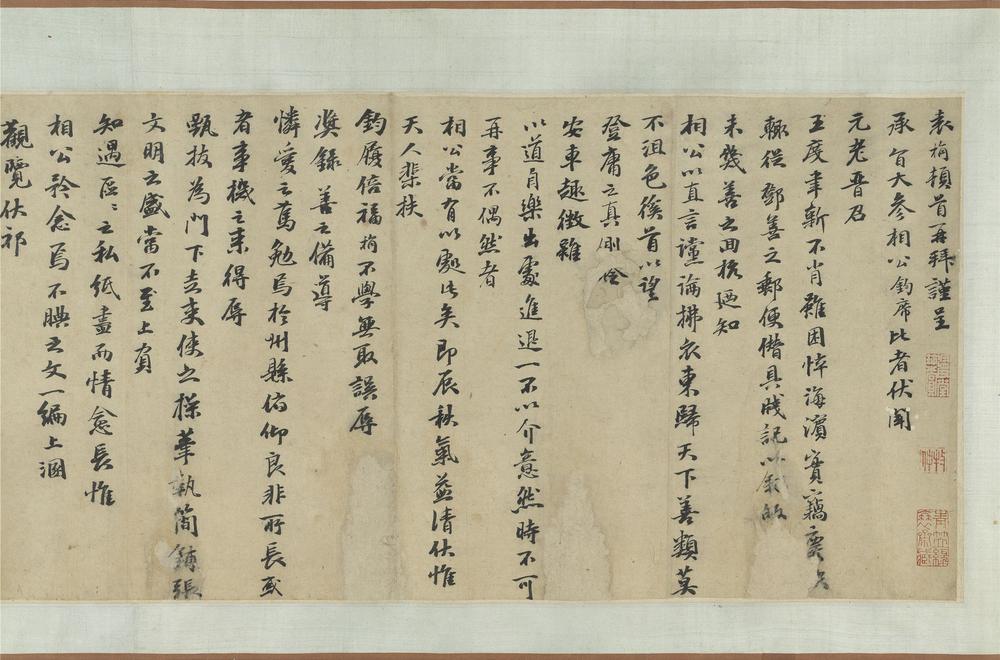 表桷頓首再拜謹呈
承旨大參相公鈞席比者伏聞
元老晉召
玉度聿新不肖雖困悴海濱實竊慶
輒從鄞善之郵便僭具牋記以敘
未幾善之回横迺知
相公以直言讜論拂衣東歸天下善類莫
不沮色徯首以望
登庸之真
安車趣徵雖
以道自樂出處進退一不以介意然時不可
再事不偶然者
相公當有以處此矣即辰秋氣益清伏惟
天人棐扶
鈞履倍福桷不學無取誤辱
奬錄善之備導
憐愛之篤勉焉於州縣俯仰良非所長或
者事機之來得辱
甄拔為門下走吏使之操筆執簡鋪張
文明之盛當不至上負
知遇區〻之私紙盡而情愈長惟
相公矜念焉不腆之文一編上溷
觀覽伏祁